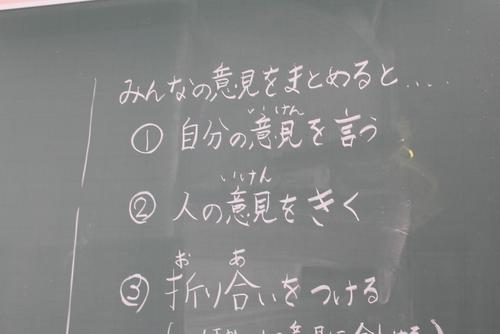 みんなの意見をまとめると.....
いけん
① 自分の意見を言う
いけん
② 人の意見をきく
お あ
③ 折り合いをつける